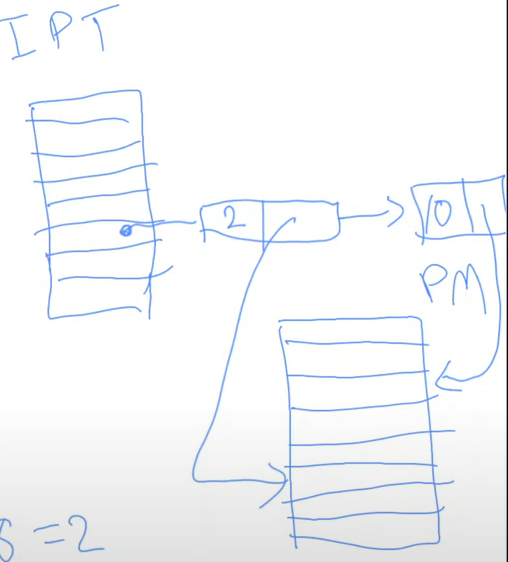 IPT
2
10
PM
8=2